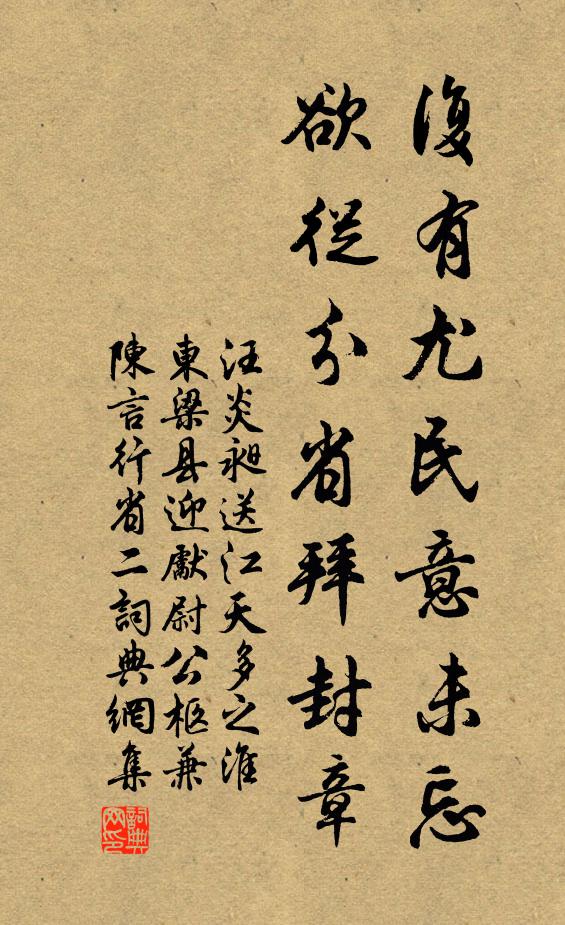 復有尤民意未忘
欲從分省拜封章
汪炎昶送江天多之淮
東梁县迎獻尉公柩兼
陳言行省二詞典網集
詞典網印